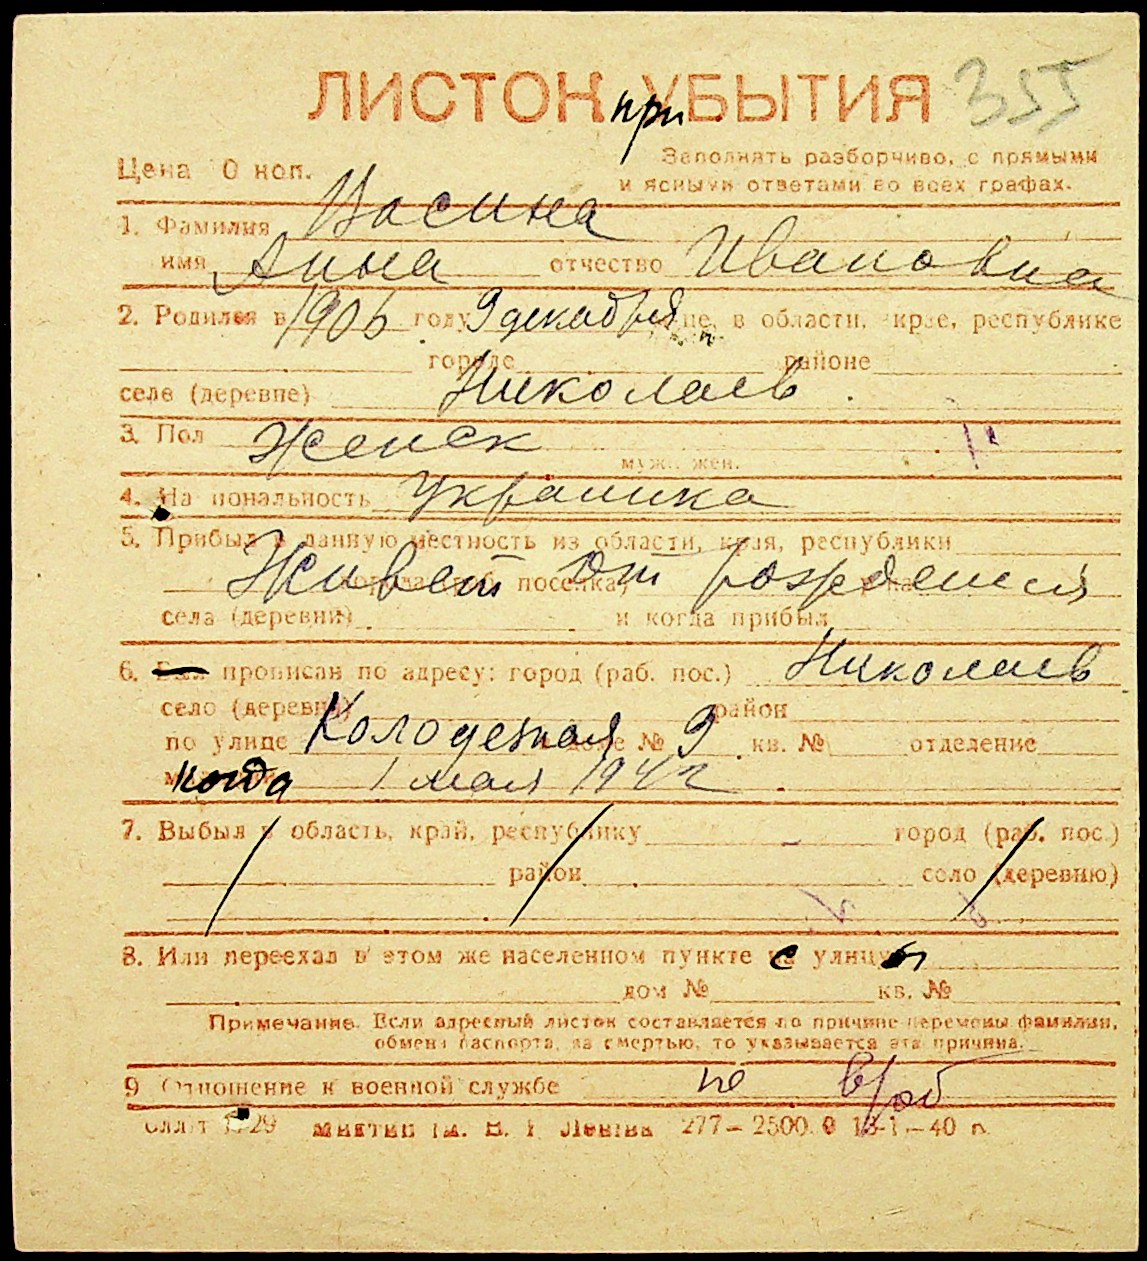 ЛИСТОК при УБЫТИЯ 355
Цена 0 коп.
Заполнять разборчиво, с прямыми
и ясными ответами во всех графах.
1. Фамилия Васина
имя Анна отчество Ивановна
2. Родился в 1906 году 9 декабря це, в области, крае, республике
городе районе
селе (деревне) Николаев
3. Пол Женск
муж., жен.
4. Национальность Украинка
5. Прибыл в данную местность из области, края, республики
Живет от рождения
города (раб. поселка)
села (деревни) и когда прибыл
6. прописан по адресу: город (раб. пос.) Николаев
село (деревня) район
по улице Колодезная в доме № 9 кв. № отделение
когда 1 мая 1942
7. Выбыл в область, край, республику город (раб. пос.)
район село (деревню)
8. Или переехал в этом же населенном пункте с улицы
дом № кв. №
Примечание. Если адресный листок составляется по причине перемены фамилии,
обмена паспорта, за смертью, то указывается эта причина.
9 Отношение к военной службе не
277–2500. 40 г.